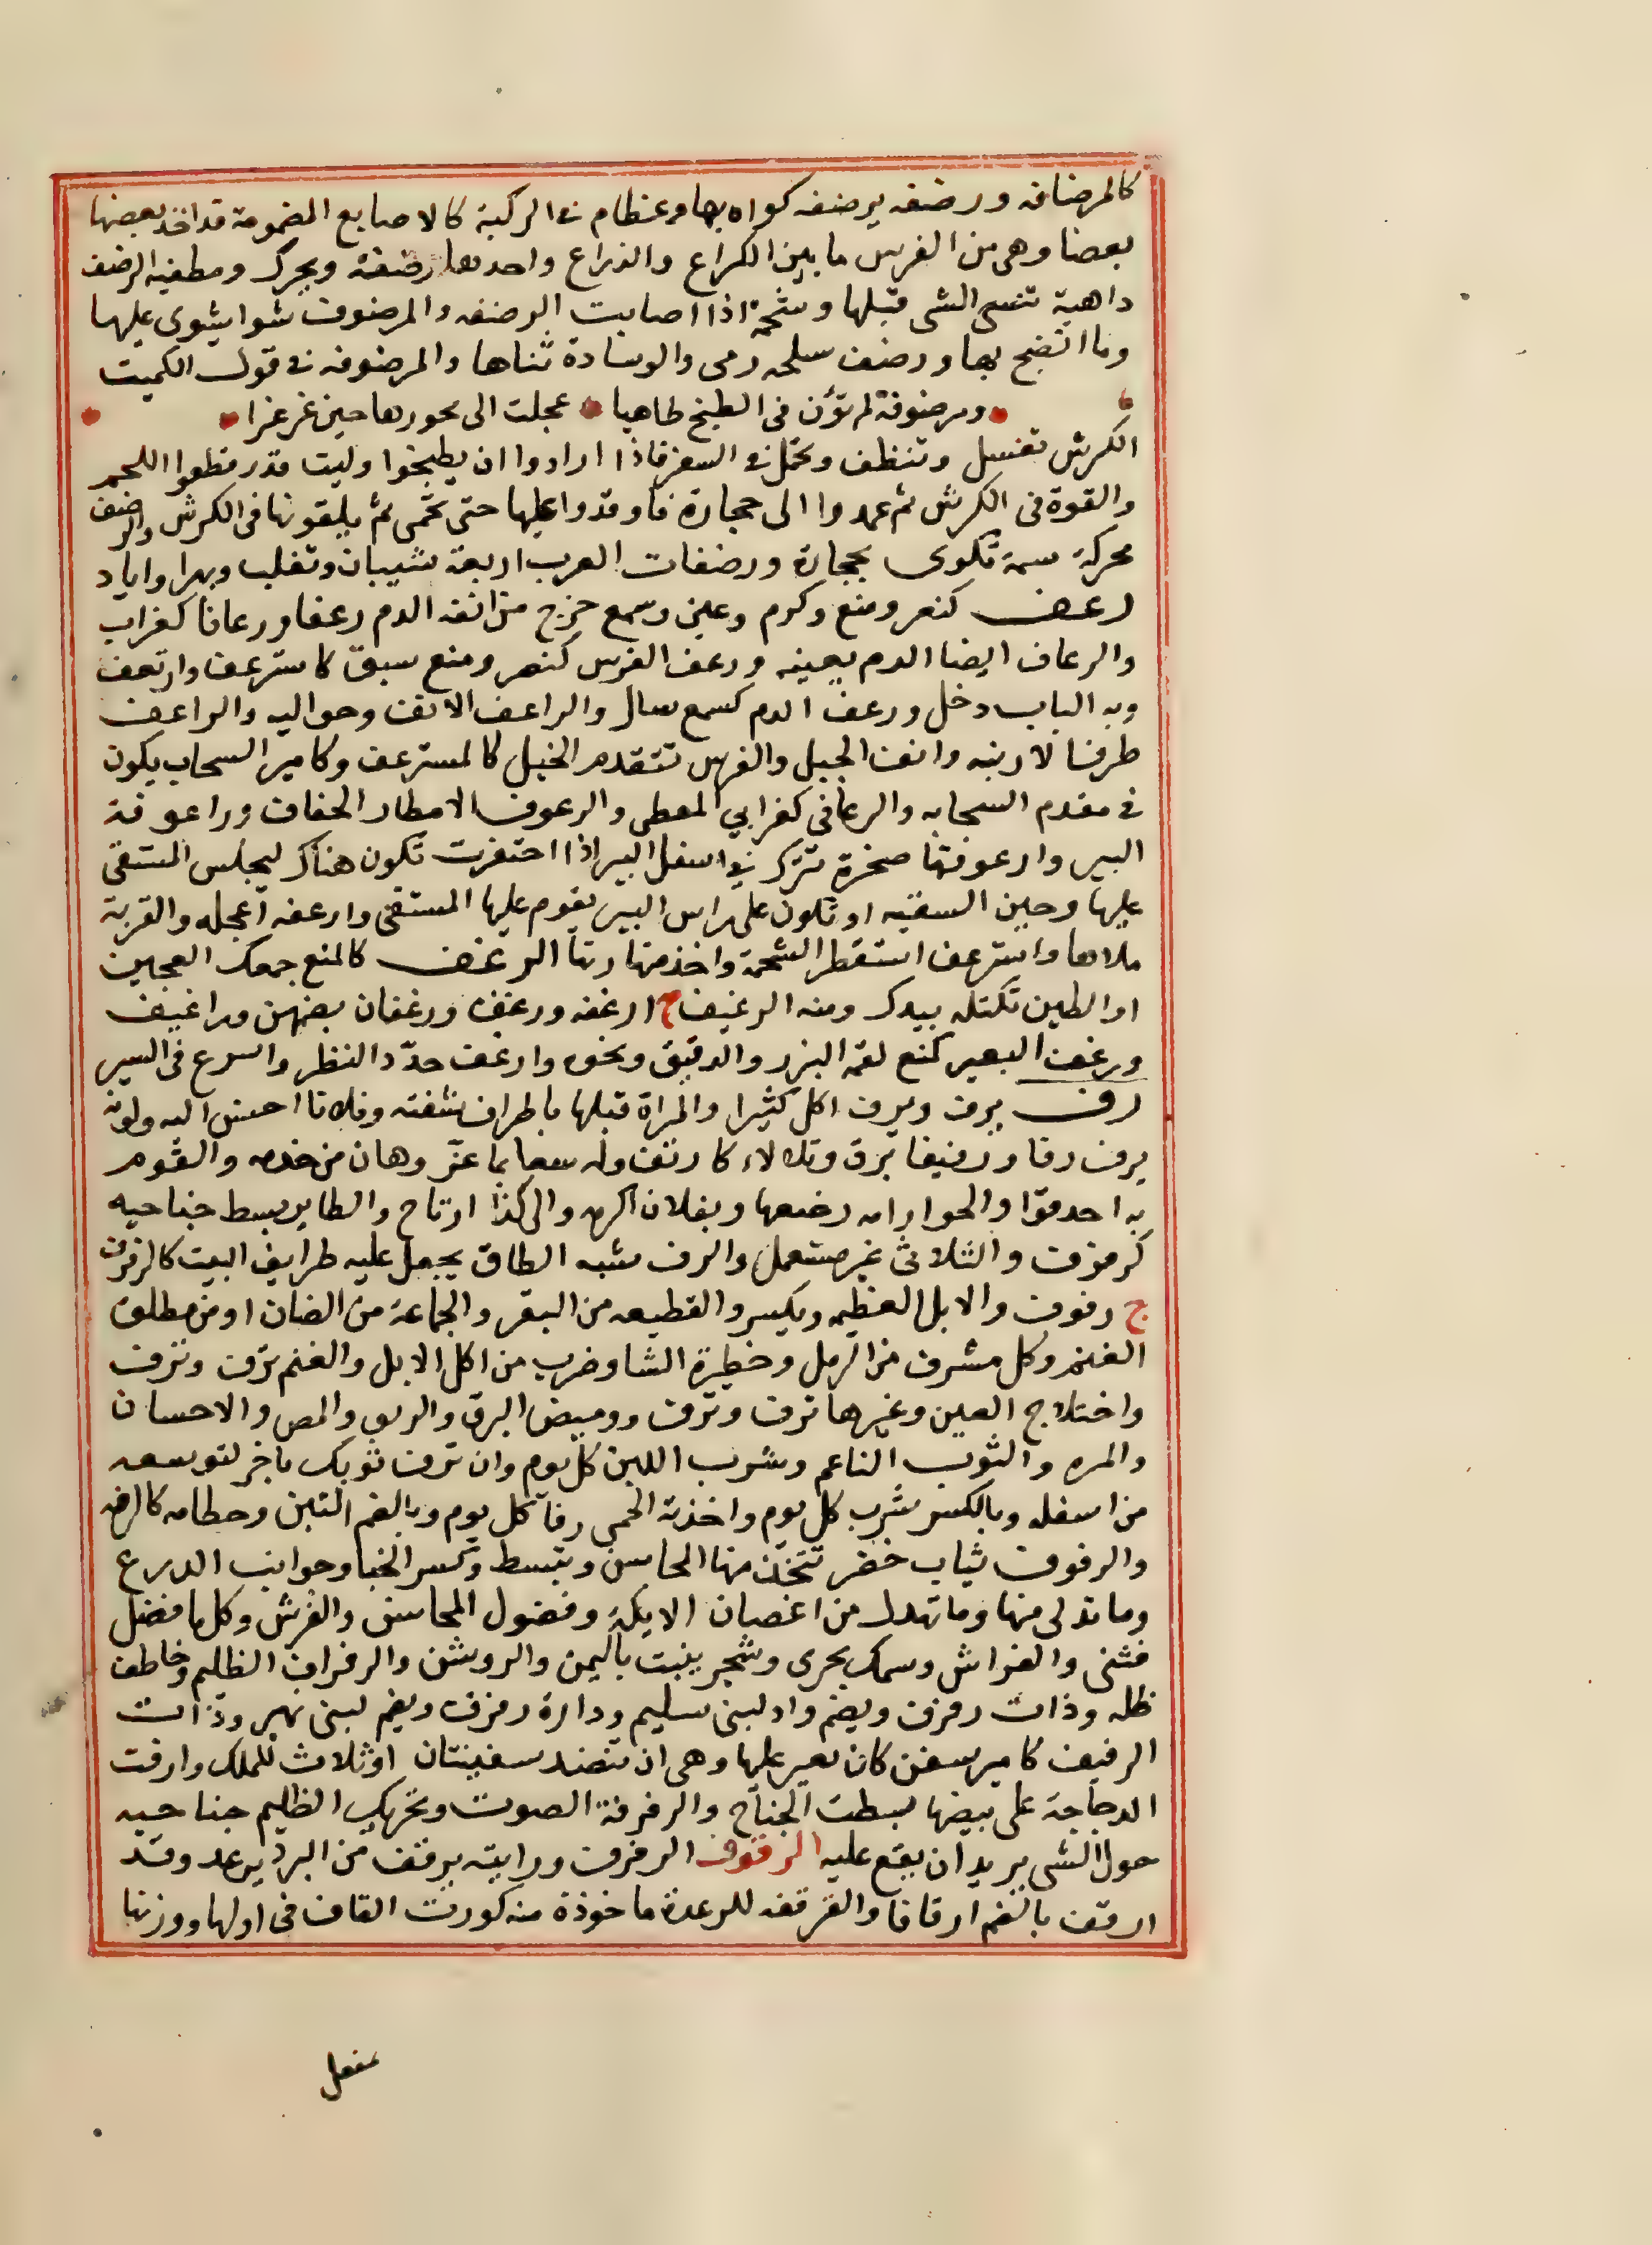 كالمرضافه ورضفه يرضفه كواه بها وعظام في الركبة كالاصابع المضمومة قد اخذ بعضها
بعضا وهي من الفرس ما بين الكراع والذراع واحدتها رضفة ويحرك ومطفية الرضف
داهية تنسي التي قبلها وشحمة اذا اصابت الرضفه والمرضوف شوا يشوى عليها
وما انضج بها ورضف بسلحه رمى والوسادة ثناها والمرضوفه في قول الكميت
ومرضوفة لم تؤن في الطبخ طاهيا عجلت الى محورها حين غرغرا
الكرش تغسل وتنظف وتحمل في السفر فاذا ارادوا ان يطبخوا وليت قدر قطعوا اللحم
والقوة في الكرش ثم عمدوا الى حجارة فاوقدوا عليها حتى تحمى ثم يلقونها في الكرش والرضف
محركة سمة تكوى بحجارة ورضفات العرب اربعة شيبان وتغلب وبهرا واياد
رعف كنصر ومنع وكرم وعني وسمع خرج من انفه الدم رعفا ورعافا كغراب
والرعاف ايضا الدم بعينه ورعف الفرس كنصر ومنع سبق كاسترعف وارتعف
وبه الباب دخل ورعف الدم كسمع سال والراعف الانف وحواليه والراعف
طرف الارنبه وانف الجبل والفرس تتقدم الخيل كالمسترعف وكامير السحاب يكون
في مقدم السحابه والرعافي كغرابي المعطي والرعوف الامطار الخفاف وراعوفة
البير وارعوفتها صخرة تترك في اسفل البير اذا احتفرت تكون هناك ليجلس المستقي
عليها وحين السقيه او تكون على راس البير يقوم عليها المستقي وارعفه اعجله والقربة
ملاها واسترعف استقطر الشحمة واخذ منها رتها الرغف كالمنع جمعك العجين
او الطين تكتله بيدك ومنه الرغيف ج ارغفه ورغف ورغفان بضمهن ومراغيف
ورغف البعير كمنع لقمه البزر والدقيق ونحوه وارغف حدّد النظر واسرع في السير
رف يرف ويرف اكل كثيرا والمراة قبلها باطراف شفته وفلانا احسن اليه ولونه
يرف رفا ورفيفا برق وتلالاء كارتف وله سعى بما عزّ وهان من خدمه والقوم
به احدقوا والحوار امه رضعها وبفلان اكرمه والى كذا ارتاح والطاير بسط جناحيه
كرفرف والثلاثي غير مستعمل والرف شبه الطاق يجعل عليه طرايف البيت كالرفرف
ج رفوف والابل العظيمه ويكسر والقطيعه من البقر والجماعة من الضان او من مطلق
الغنم وكل مشرف من الرمل وحظيرة الشا وضرب من اكل الابل والغنم ترف وترف
واختلاج العين وغيرها ترف وترف ووميض البرق والريق والمص والاحسان
والمره والثوب الناعم وشرب اللبن كل يوم وان ترف ثوبك باخر لتوسعه
من اسفله وبالكسر شرب كل يوم واخذته الحمى رفا كل يوم وبالضم التبن وحطامه كالرفه
والرفوف ثياب خضر تتخذ منها المحابس وتبسط وكسر الخبا وجوانب الدرع
وما تدلى منها وما تهدل من اغصان الايكة وفضول المحابس والفرش وكل ما فضل
فثني والفراش وسمك بحري وشجر ينبت باليمن والروشن والرفراف الظليم وخاطف
ظله وذات رفرف ويضم واد لبني سليم ودارة رفرف ويضم لبني نمير وذات
الرفيف كامير سفن كان يعبر عليها وهي ان تنضد سفينتان او ثلاث للملك وارفت
الدجاجة على بيضها بسطت الجناح والرفرفة الصوت وتحريك الظليم جناحيه
حول الشي يريد ان يقع عليه الرقوف الرفرف ورايته يرقف من البرد يرعد وقد
ارقف بالضم ارقافا والقرقفه للرعدة ماخوذة منه كورت القاف في اولها ووزنها